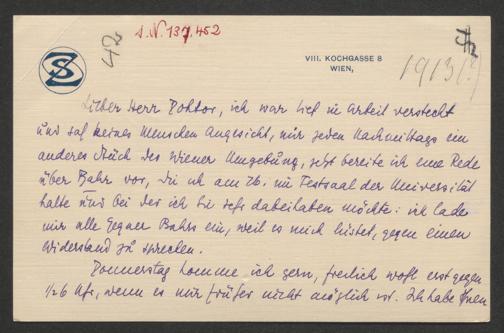 S.N. 137.452
42
SZ
VIII. KOCHGASSE 8
WIEN,
1913(?)
Lieber Herr Doktor, ich war tief in Arbeit versteckt
und sah keines Menschen Angesicht, nur jeden Nachmittags ein
anderes Stück der Wiener Umgebung, jetzt bereite ich eine Rede
über Bahr vor, die ich am 26. im Festsaal der Universität
halte und bei der ich Sie sehr dabeihaben möchte: ich lade
mir alle Gegner Bahrs ein, weil es mich lüstet, gegen einen
Widerstand zu sprechen.
Donnerstag komme ich gern, freilich wohl erst gegen
1/2 6 Uhr, wenn es mir früher nicht möglich
Ich habe Ihnen